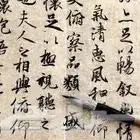 足以暢敘
氣清惠風和
俯察品類
懷足以極視聽之
夫人之相與俯仰